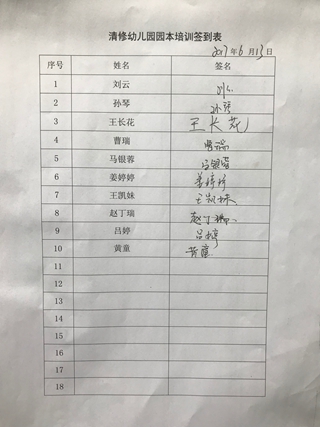 清修幼儿园园本培训签到表
2017年6月13日
序号 姓名 签名
1 刘云 刘云
2 孙琴 孙琴
3 王长花 王长花
4 曹瑞 曹瑞
5 马银蓉 马银蓉
6 姜婷婷 姜婷婷
7 王凯妹 王凯妹
8 赵丁瑞 赵丁瑞
9 吕婷 吕婷
10 黄童 黄童
11
12
13
14
15
16
17
18